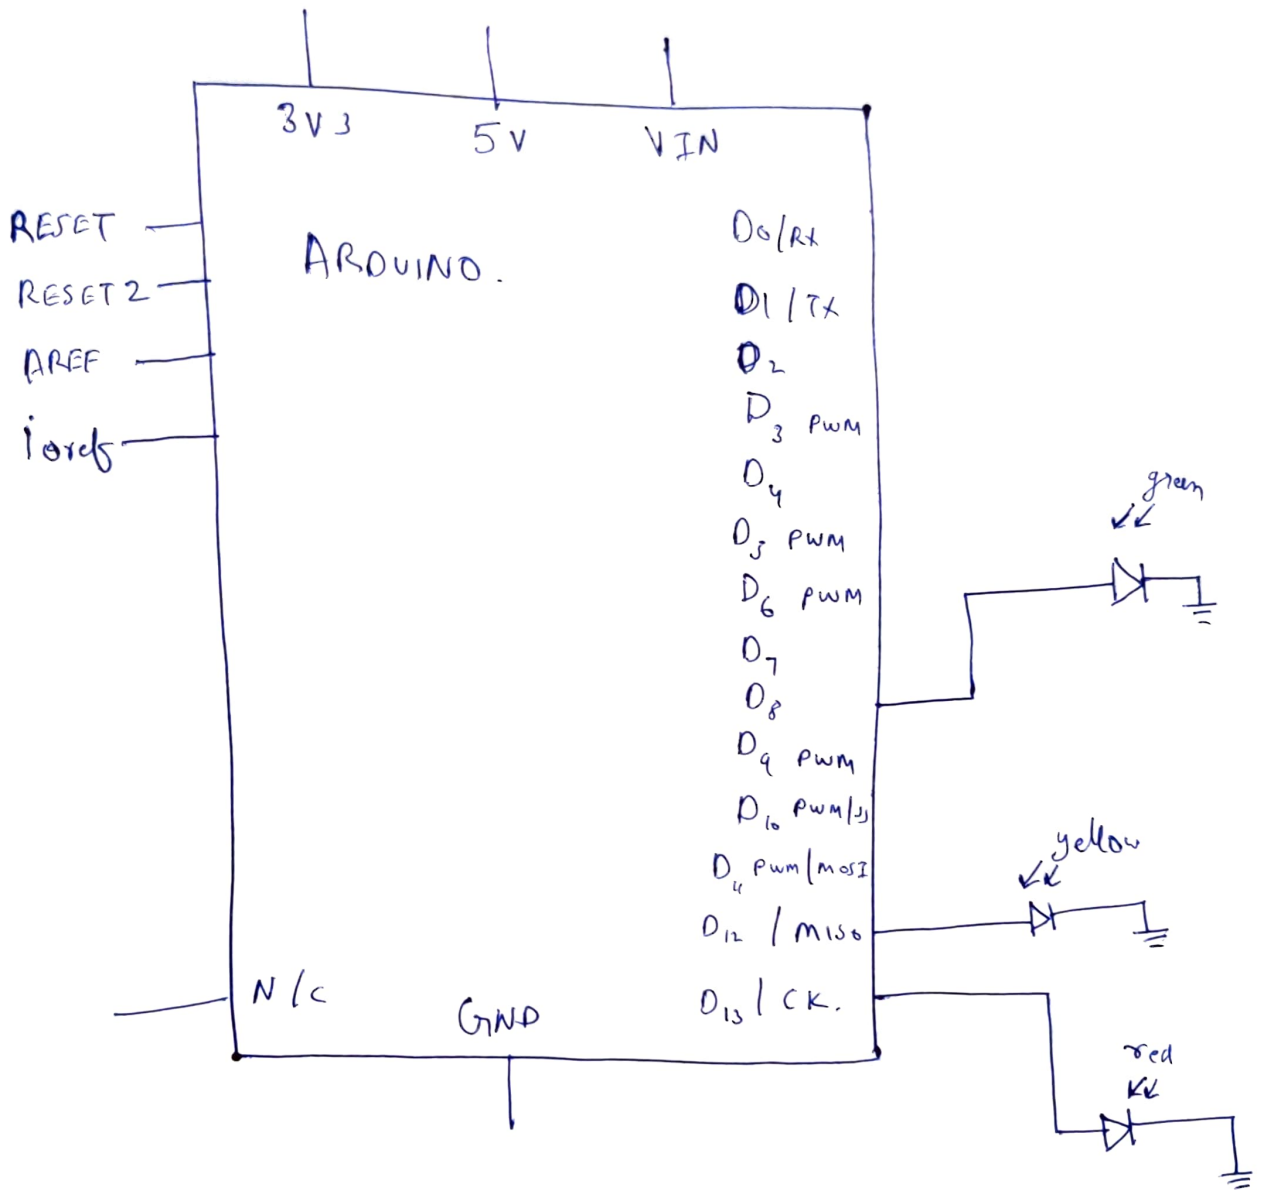 3V3
5V
VIN
RESET
RESET2
AREF
ioref
ARDUINO.
D0/RX
D1/TX
D2
D3 PWM
D4
D5 PWM
D6 PWM
D7
D8
D9 PWM
D10 PWM/SS
D11 PWM/MOSI
D12 / MISO
D13 / CK.
N/C
GND
green
yellow
red